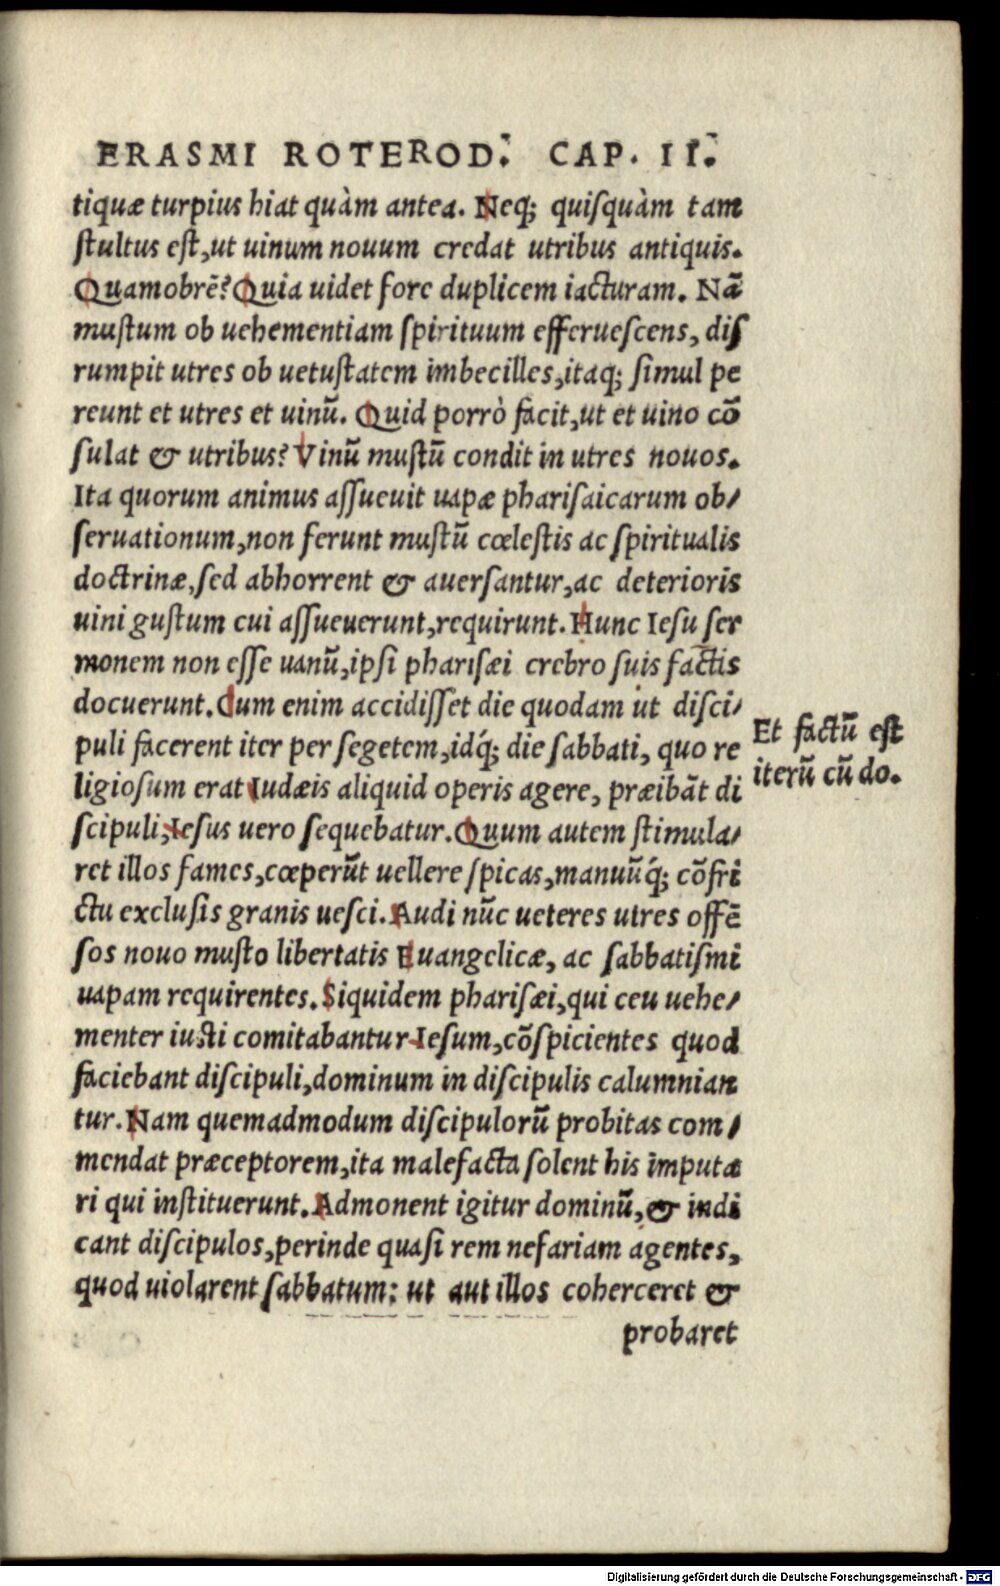 ERASMI ROTEROD. CAP. II.
tiquæ turpius hiat quàm antea. Neq; quiſquàm tam
ſtultus eſt, ut uinum nouum credat utribus antiquis.
Quamobrē? Quia uidet fore duplicem iacturam. Nā
muſtum ob uehementiam ſpirituum efferueſcens, diſ
rumpit utres ob uetuſtatem imbecilles, itaq; ſimul pe
reunt et utres et uinū. Quid porrò facit, ut et uino cō
ſulat & utribus? Vinū muſtū condit in utres nouos.
Ita quorum animus aſſueuit uapæ phariſaicarum ob/
ſeruationum, non ferunt muſtū cœleſtis ac ſpiritualis
doctrinæ, ſed abhorrent & auerſantur, ac deterioris
uini guſtum cui aſſueuerunt, requirunt. Hunc Ieſu ſer
monem non eſſe uanū, ipſi phariſæi crebro ſuis factis
docuerunt. Cum enim accidiſſet die quodam ut diſci/
puli facerent iter per ſegetem, idq́; die ſabbati, quo re
ligioſum erat Iudæis aliquid operis agere, præibāt di
ſcipuli, Ieſus uero ſequebatur. Quum autem ſtimula/
ret illos fames, cœperūt uellere ſpicas, manuūq́; cōfri
ctu excluſis granis ueſci. Audi nūc ueteres utres offē
ſos nouo muſto libertatis Euangelicæ, ac ſabbatiſmi
uapam requirentes. Siquidem phariſæi, qui ceu uehe/
menter iuſti comitabantur Ieſum, cōſpicientes quod
faciebant diſcipuli, dominum in diſcipulis calumnian
tur. Nam quemadmodum diſcipulorū probitas com/
mendat præceptorem, ita malefacta ſolent his imputa
ri qui inſtituerunt. Admonent igitur dominū, & indi
cant diſcipulos, perinde quaſi rem nefariam agentes,
quod uiolarent ſabbatum: ut aut illos coherceret &
probaret
Et factū eſt
iterū cū do.
Digitalisierung gefördert durch die Deutsche Forschungsgemeinschaft - DFG